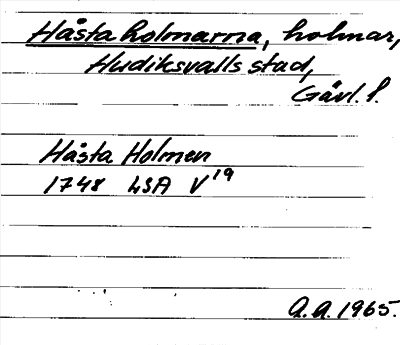 Håsta holmarna, holmar,
Hudiksvalls stad,
Gävl. l.
Håsta Holmen
1748 LSA V¹⁹
A.A. 1965.